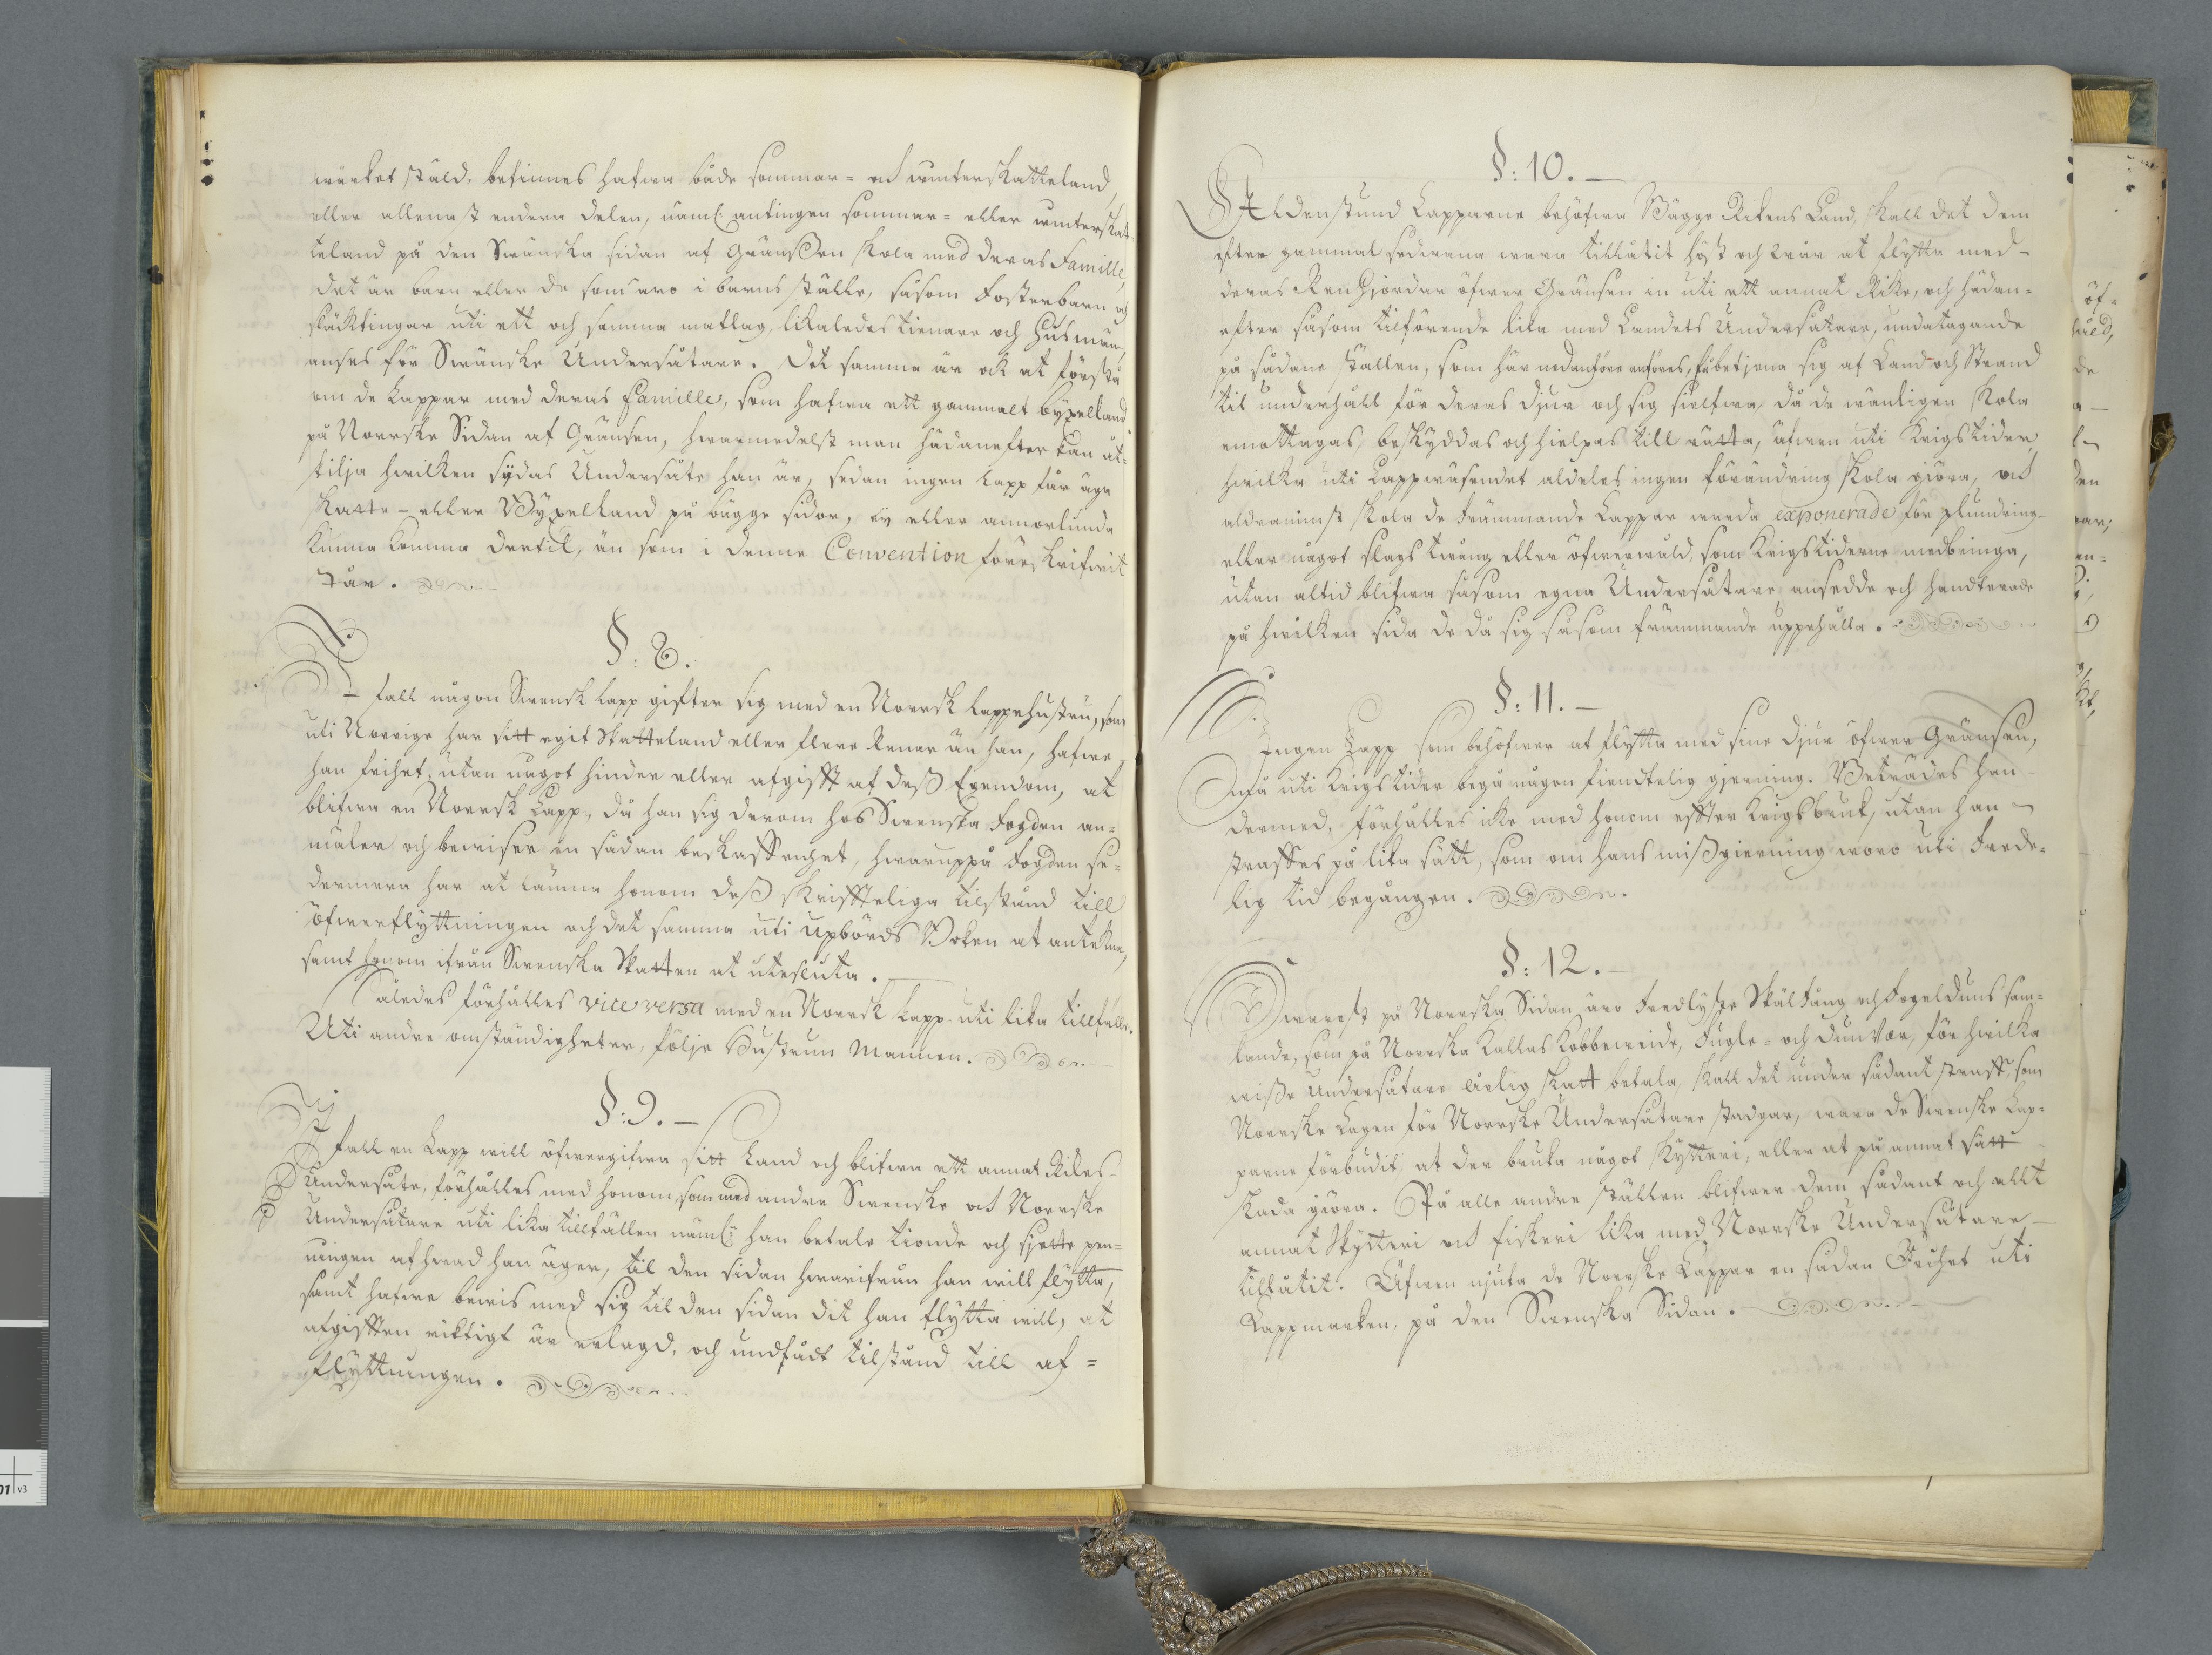 wärket stäld, befinnes hafwa både sommar= och winterskatteland,
eller allenast endera delen, näml: antingen sommar= eller winterskat-
teland på den Swänska sidan af Gränssen skola med deras Famille,
det är barn eller de som äro i barns ställe, såsom Fosterbarn och
släktingar uti ett och samma matlag, likaledes tienare och Husmän,
anses för Swänske Undersåtare. Det samma är ock at förstå
om de Lappar med deras famille, som hafwa ett gammalt byxelland
på Norrske Sidan af Gränsen, hwarmedelst man hädanefter kan åt-
skilja hwilken sydas Undersåte han är, sedan ingen Lapp får äga
Skatte- eller Byxelland på bägge sidor, ey eller annorlunda
kunna komma dertil, än som i denne Convention föreskrifwit
står.
§: 8.
I fall någon Swensk Lapp gifter sig med en Norrsk Lappehustru, som
uti Norrige har sitt egit Skatteland eller flere Renar än han, hafwe
han frihet, utan något hinder eller afgifft af dess Egendom, at
blifwa en Norrsk Lapp, då han sig derom hos Swenska Fogden an=
mäler och bewiser en sådan beskaffenhet, hwaruppå Fogden se=
dermera har at lämna honom dess skrifftteliga tilstånd till
öfwerflyttningen och det samma uti Upbörds Boken at antekna,
samt honom ifrån Swenska Skatten at utesluta.
Således förhålles vice versa med en Norrsk Lapp uti lika tillfälle.
Uti andre omständigheter, följe Hustrun Mannen.
§: 9.
I fall en Lapp will öfwergifwa sitt Land och blifwa ett annat Rikes
Undersåte, förhålles med honom, som med andre Swenske och Norrske
Undersåtare uti lika tillfällen näml: han betale tionde och sjette pen=
ningen af hwad han äger, til den sidan hwarifrån han will flytta,
samt hafwe bewis med sig til den sidan dit han flytta will, at
afgifften riktigt är erlagd, och undfådt tilstånd till af=
flyttningen.
§: 10.
Aldenstund Lapparne behöfwa Bägge Rikens Land, skall det dem
efter gammal sedwana wara tillåtit höst och wår at flytta med
deras Ren Hjordar öfwer Gränsen in uti ett annat Rike, och hädan=
efter såsom tilförende lika med Landets Undersåtare, undatagande
på sådane ställen, som här nedanföre anföres, få betjena sig af Land och Strand
til underhåll för deras djur och sig sielfwa, då de wänligen skola
emottagas, beskyddas och hielpas till rätta, äfwen uti Krigstider,
hwilka uti Lappwäsendet aldeles ingen förändring skola giöra, och
aldraminst skola de Främmande Lappar warda exponerade för plundring
eller något slags twång eller öfwerwåld, som Krigstiderne medbringa,
utan altid blifwa såsom egna Undersåtare ansedde och handterade
på hwilken sida de då sig såsom främmande uppehålla.
§: 11.
Ingen Lapp som behöfwer at flytta med sine djur öfwer Gränsen,
må uti Krigstider begå någon fiendtelig gjerning. Beträdes han
dermed, förhålles icke med honom effter Krigsbruk, utan han
straffes på lika sätt, som om hans missgierning woro uti Frede=
lig tid begången.
§: 12.
Hwarest på Norrska Sidan äro Fredlyste Skälfång och Fogelduns sam=
lande, som på Norrska kallas Kobbeweide, Fugle= och DunVær, för hwilka
wisse Undersåtare årlig skatt betala, skall det under sådant straff, som
Norrske Lagen för Norrske Undersåtare stadgar, wara de Swenske Lap=
parne förbudit, at der bruka något Skytteri, eller at på annat sätt
skada giöra. På alle andre ställen blifwer dem sådant och allt
annat Skytteri och fiskeri lika med Norrske Undersåtare
tillåtit. Äfwen njuta de Norrske Lappar en sådan Frihet uti
Lappmarken, på den Swenska Sidan.